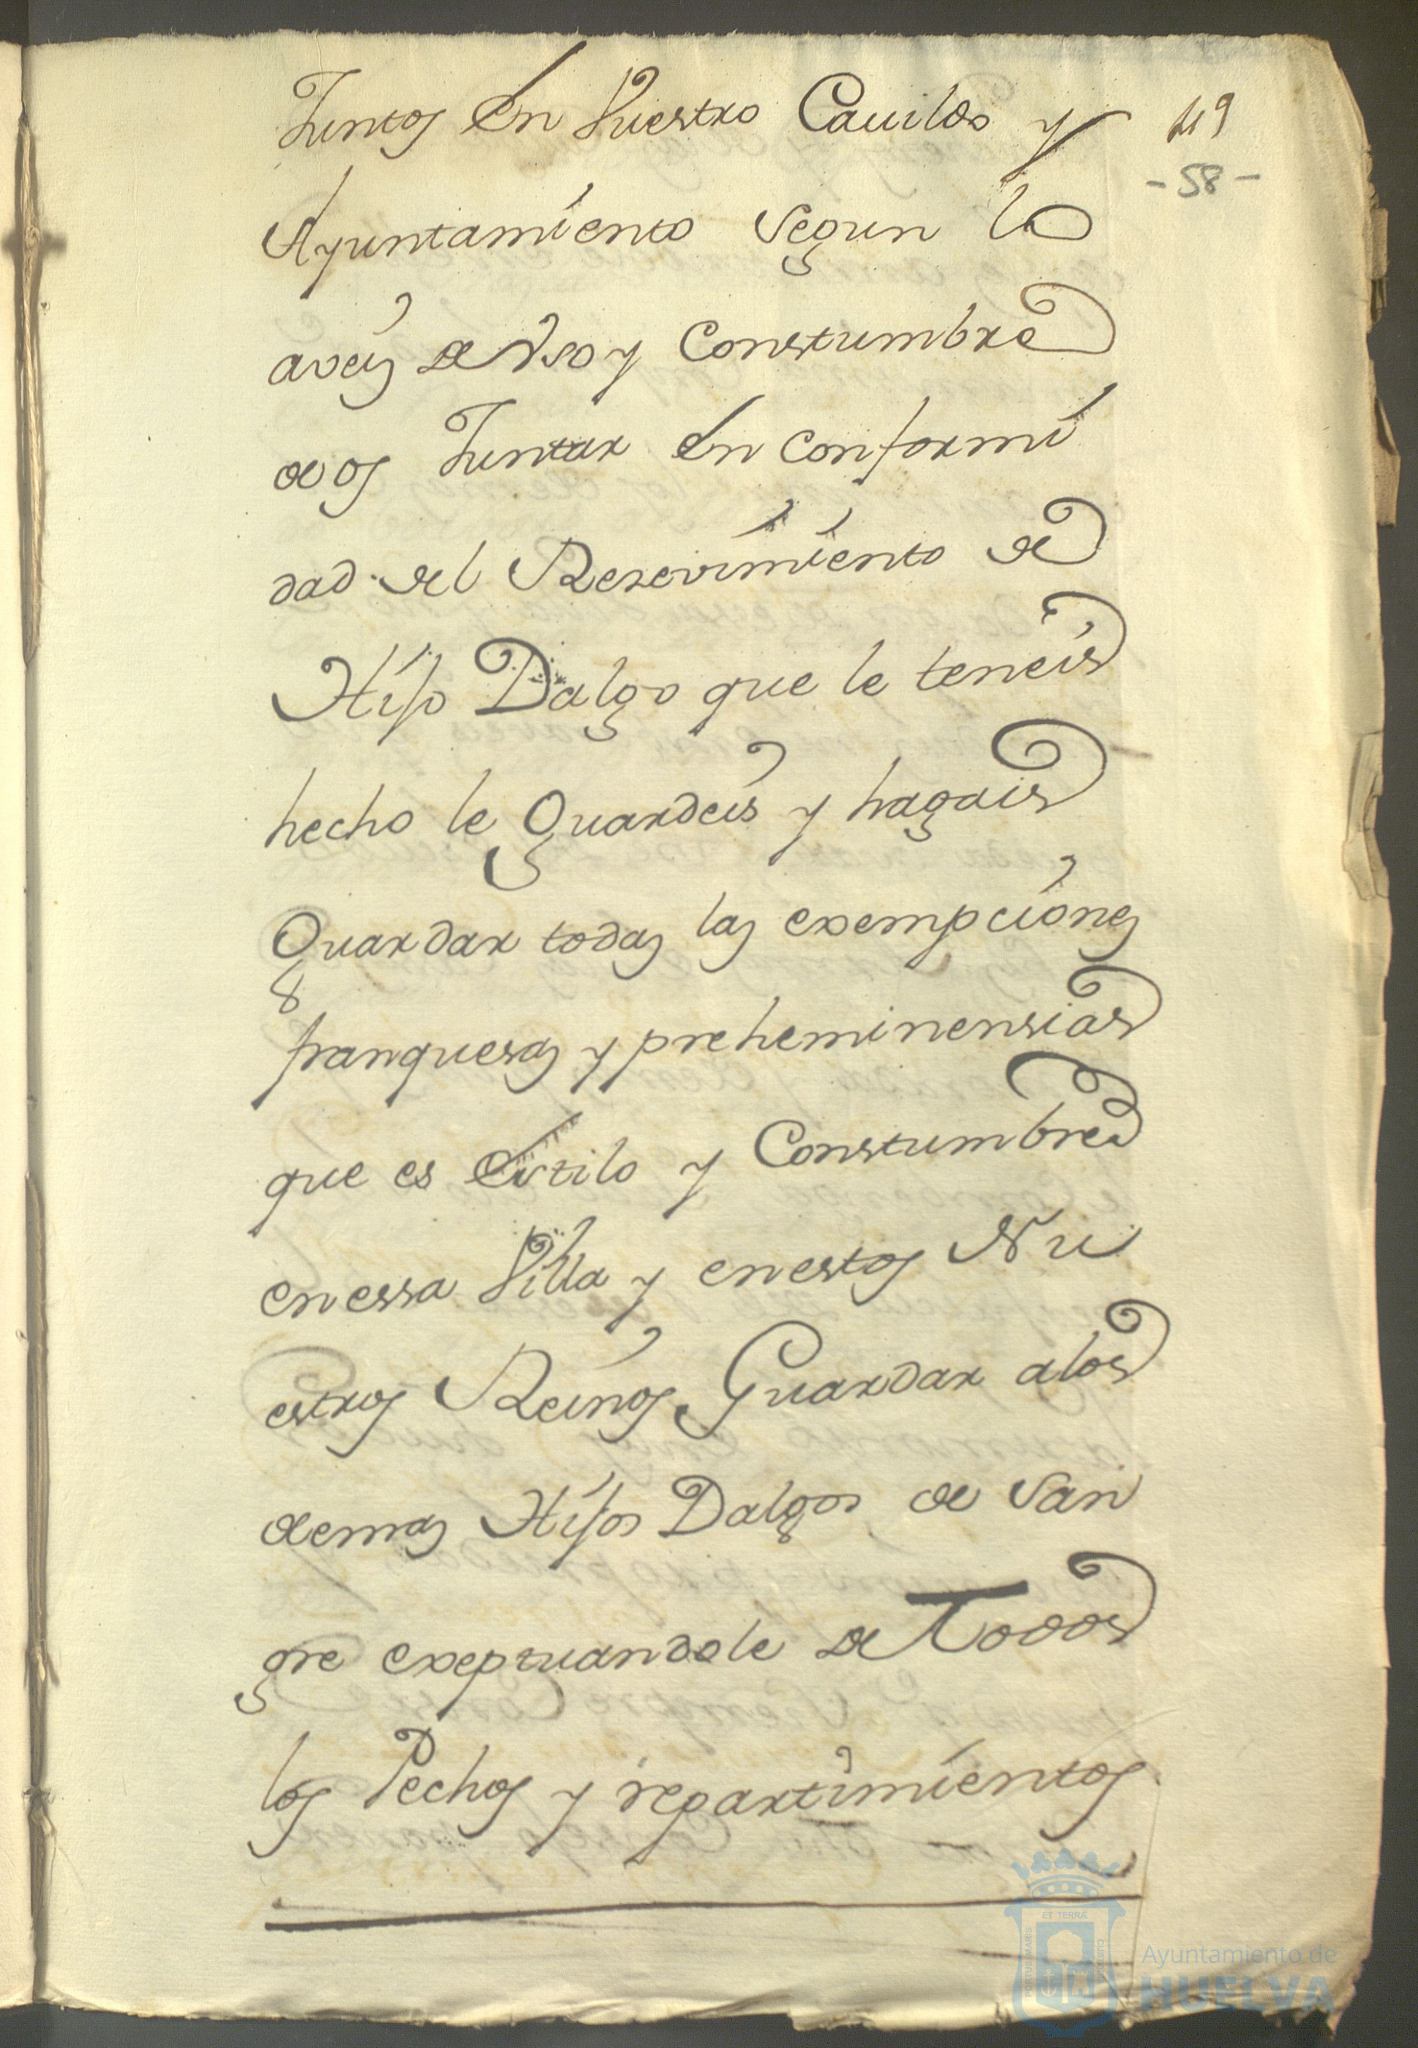 Juntos En Vuestro Cavildo y
49
- 58 -
Ayuntamiento Segun lo
aveis de Vso y Constumbre
de os Juntar En conformi
dad del Resevimiento de
Hijo Dalgo que le teneis
hecho le Guardeis y hagais
Guardar todas las exempciones
franquesas y preheminensias
que es Estilo y Constumbre
en essa Villa y en estos Nu
estros Reinos Guardar a los
demas Hijos Dalgos de San
gre exeptuandole de Todos
los Pechos y repartimientos
ET TERRÆ
Ayuntamiento de
HUELVA